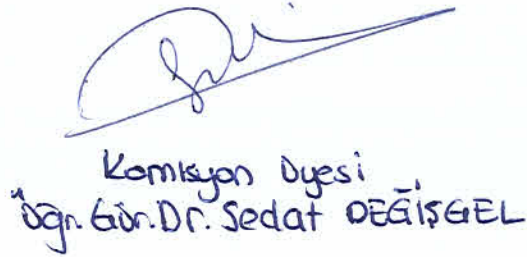 Komisyon Üyesi
Öğr. Gör. Dr. Sedat DEĞİŞGEL